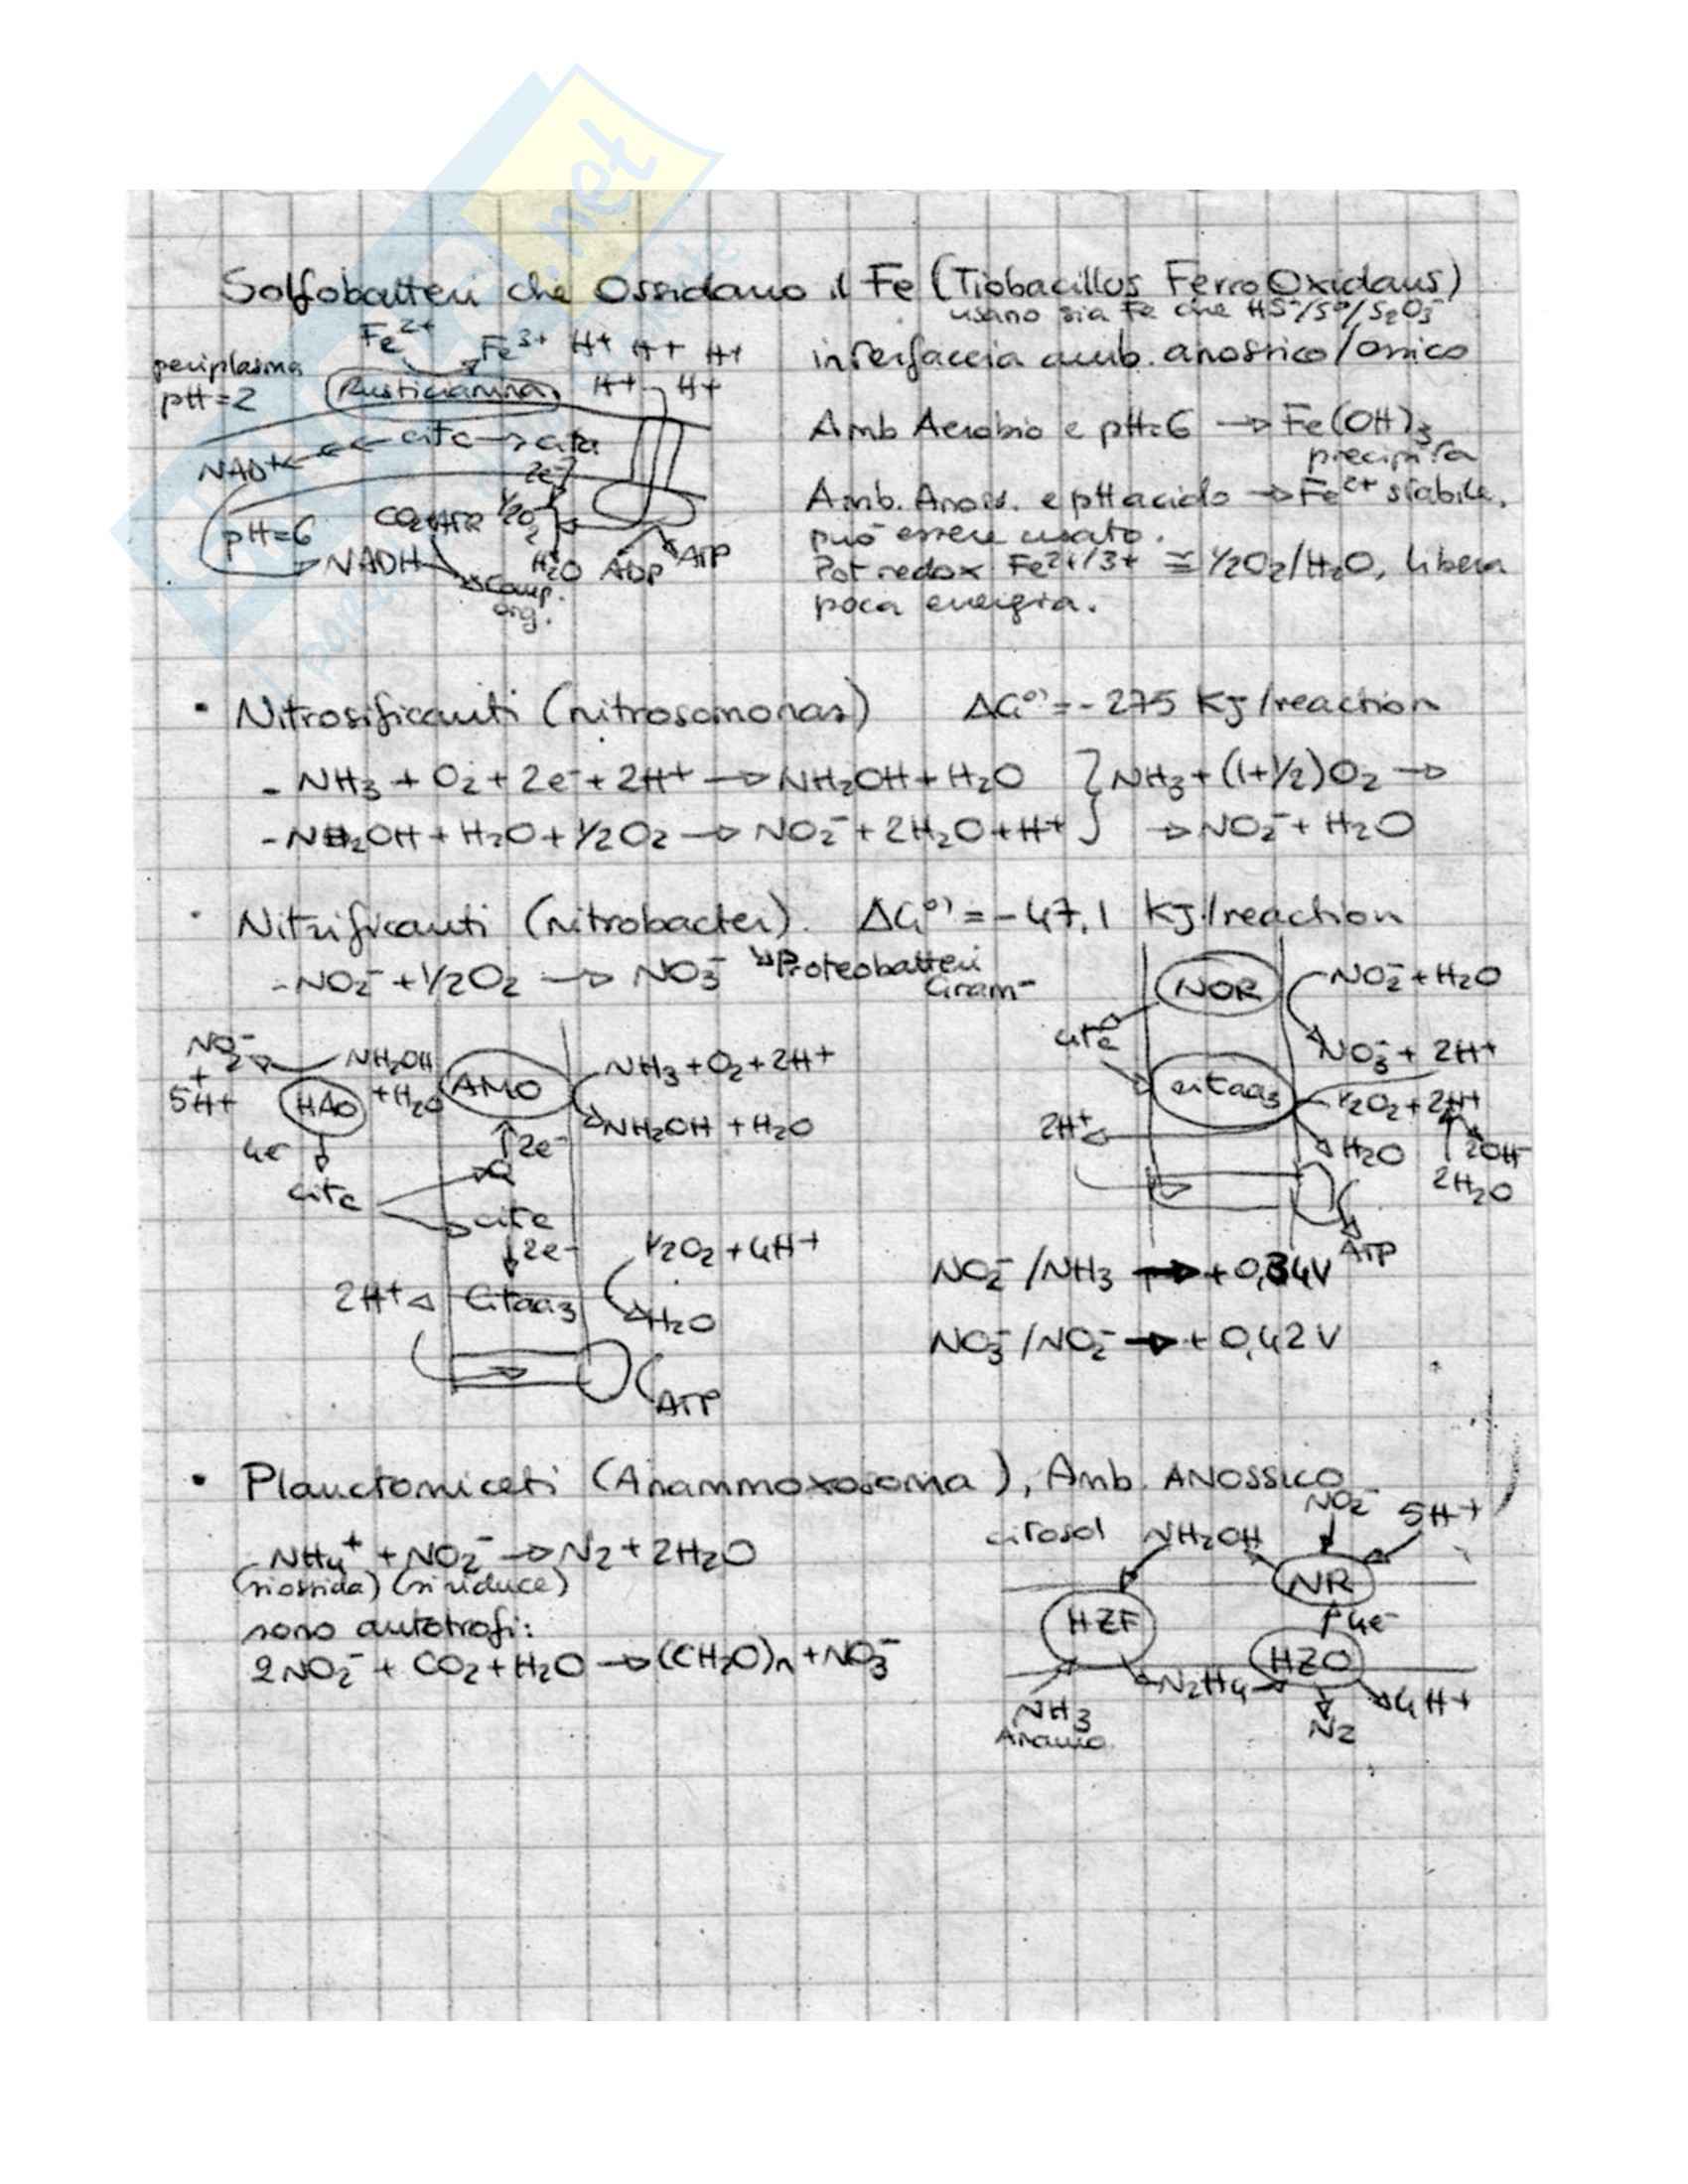 Solfobatteri che Ossidano il Fe (Tiobacillus FerroOxidans)
usano sia Fe che HS⁻/S⁰/S₂O₃⁻
Fe²⁺ Fe³⁺ H⁺ H⁺ H⁺
periplasma
pH=2
Rusticianina H⁺ H⁺
interfaccia amb. anossico/ossico
NAD⁺ cit c → cit a
2e⁻
Amb Aerobio e pH=6 → Fe(OH)₃
precipita
pH=6 CO₂ ATP ½O₂
NADH H₂O ADP ATP
Comp.
org.
Amb. Anoss. e pH acido → Fe²⁺ stabile,
può essere usato.
Pot redox Fe²⁺/³⁺ ≅ ½O₂/H₂O, libera
poca energia.
• Nitrosificanti (nitrosomonas) ΔG⁰' = -275 KJ/reaction
- NH₃ + O₂ + 2e⁻ + 2H⁺ → NH₂OH + H₂O } NH₃ + (1+½)O₂ →
- NH₂OH + H₂O + ½O₂ → NO₂⁻ + 2H₂O + H⁺ } → NO₂⁻ + H₂O
• Nitrificanti (nitrobacter). ΔG⁰' = -47,1 KJ/reaction
- NO₂⁻ + ½O₂ → NO₃⁻ Proteobatteri
Gram⁻
NO₂⁻ + 5H⁺ NH₂OH + H₂O
HAO
4e⁻
cit c
AMO NH₃ + O₂ + 2H⁺
NH₂OH + H₂O
2e⁻
Q
cit c
2e⁻ ½O₂ + 4H⁺
2H⁺ Cit aa₃ H₂O
ATP
NOR NO₂⁻ + H₂O
cit c NO₃⁻ + 2H⁺
cit aa₃ ½O₂ + 2H⁺
2H⁺ H₂O 2OH⁻
2H₂O
ATP
NO₂⁻/NH₃ → +0,34V
NO₃⁻/NO₂⁻ → +0,42V
• Planctomiceti (Anammoxosoma), Amb. ANOSSICO
NH₄⁺ + NO₂⁻ → N₂ + 2H₂O
(si ossida) (si riduce)
sono autotrofi:
2NO₂⁻ + CO₂ + H₂O → (CH₂O)n + NO₃⁻
citosol NH₂OH NO₂⁻ 5H⁺
NR
HZF 4e⁻
HZO
N₂H₄ 4H⁺
NH₃ N₂